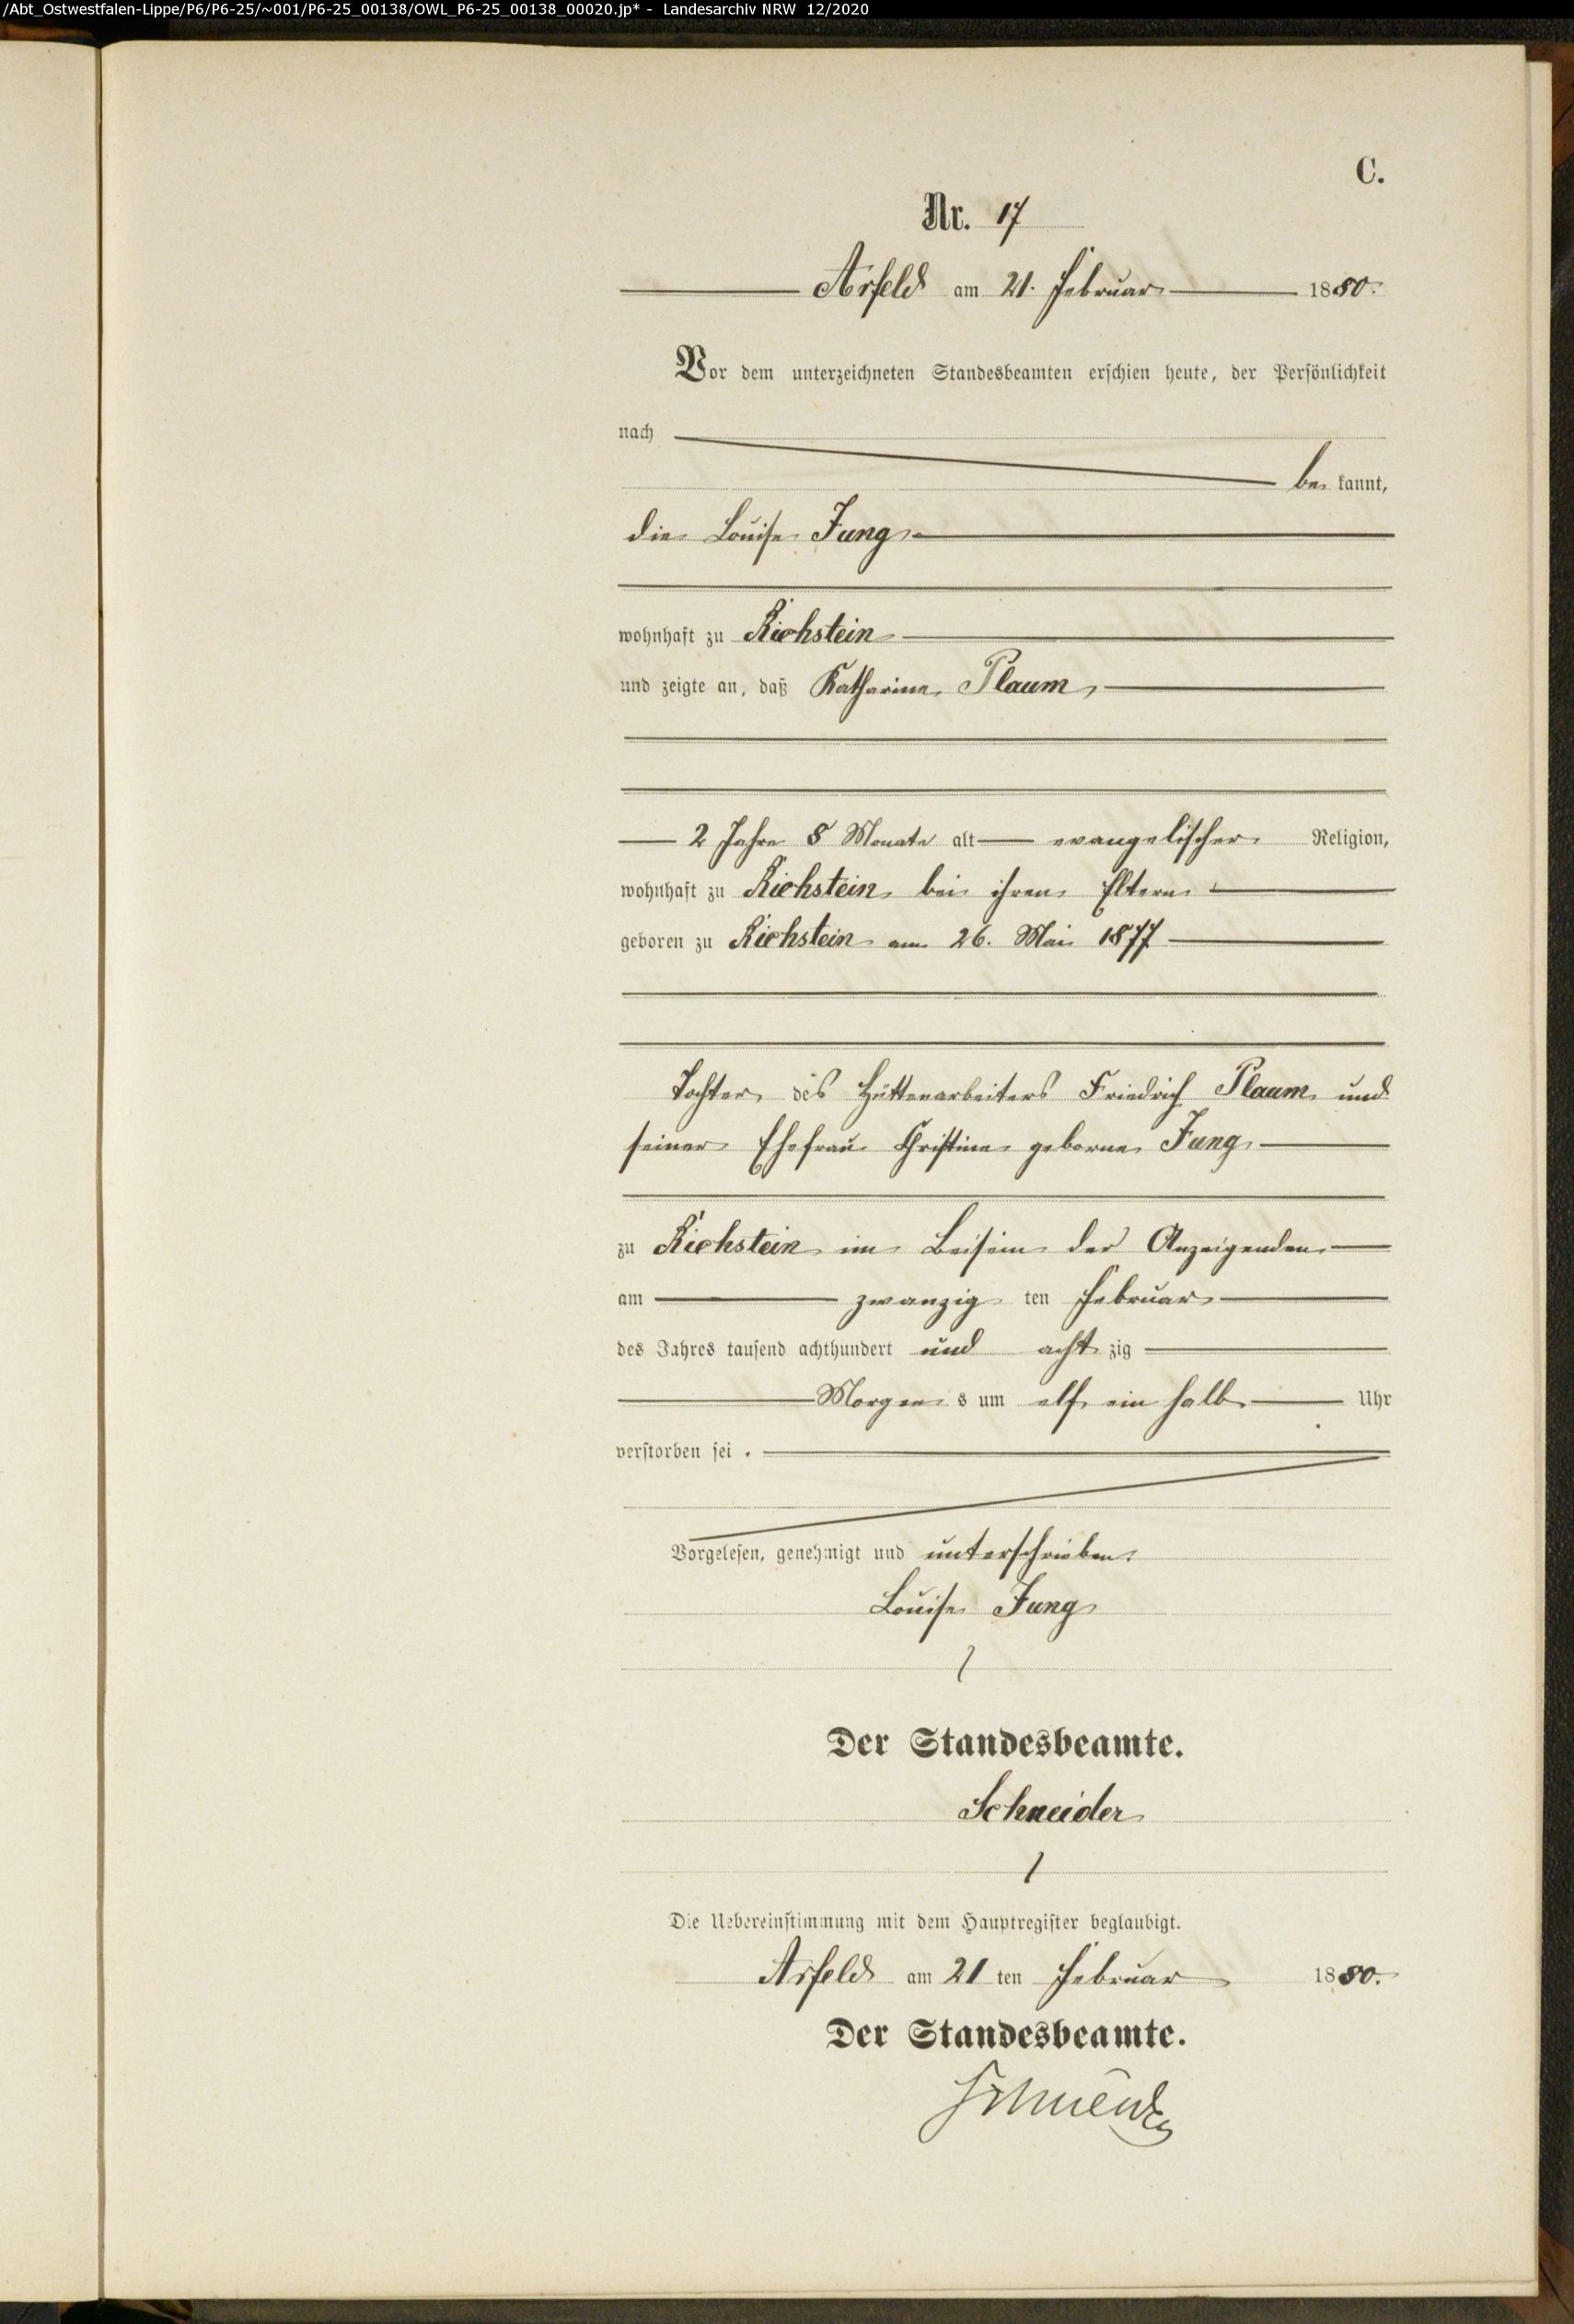 /Abt_Ostwestfalen-Lippe/P6/P6-25/~001/P6-25_00138/OWL_P6-25_00138_00020.jp* - Landesarchiv NRW 12/2020
C.
Nr. 17
Arfeld am 21. Februar 1880.
Vor dem unterzeichneten Standesbeamten erschien heute, der Persönlichkeit
nach
be kannt,
die Louise Jung
wohnhaft zu Richstein
und zeigte an, daß Katharine Plaum,
2 Jahre 8 Monate alt evangelischer Religion,
wohnhaft zu Richstein bei ihren Eltern
geboren zu Richstein am 26. Mai 1877
Tochter des Hüttenarbeiters Friedrich Plaum und
seiner Ehefrau Christine geborne Jung
zu Richstein im Beisein der Anzeigenden
am zwanzig ten Februar
des Jahres tausend achthundert und acht zig
Morgen s um elf ein halb Uhr
verstorben sei .
Vorgelesen, genehmigt und unterschrieben.
Louise Jung
Der Standesbeamte.
Schneider
Die Uebereinstimmung mit dem Hauptregister beglaubigt.
Arfeld am 21 ten Februar 1880.
Der Standesbeamte.
Schneider